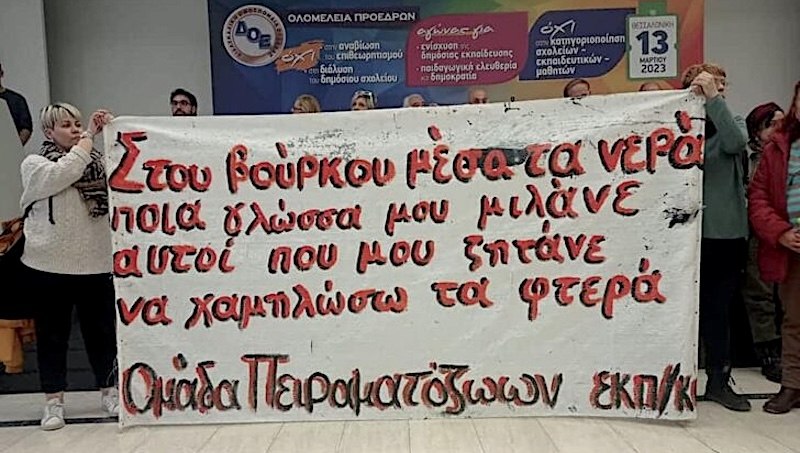 ΔΟΕ
ΟΛΟΜΕΛΕΙΑ ΠΡΟΕΔΡΩΝ
ΟΧΙ
στην αναβίωση
του επιθεωρητισμού
στη διάλυση
του δημόσιου σχολείου
αγώνας για
• ενίσχυση της
δημόσιας εκπαίδευσης
• παιδαγωγική ελευθερία
και δημοκρατία
ΟΧΙ
στην κατηγοριοποίηση
σχολείων -
εκπαιδευτικών -
μαθητών
ΘΕΣΣΑΛΟΝΙΚΗ
13
ΜΑΡΤΙΟΥ
2023
Στου βούρκου μέσα τα νερά
ποια γλώσσα μου μιλάνε
αυτοί που μου ζητάνε
να χαμηλώσω τα φτερά
Ομάδα Πειραματόζωων εκπ/κ